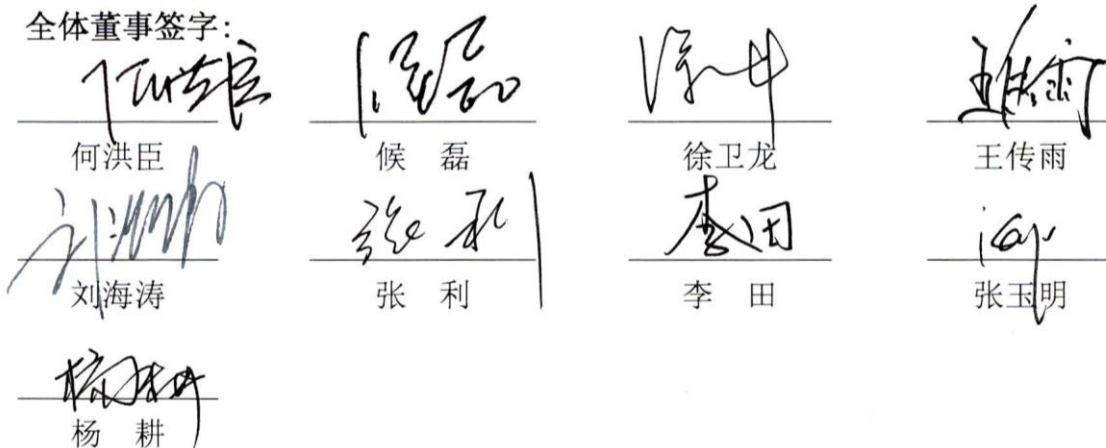 全体董事签字：
何洪臣 候 磊 徐卫龙 王传雨
刘海涛 张 利 李 田 张玉明
杨 耕